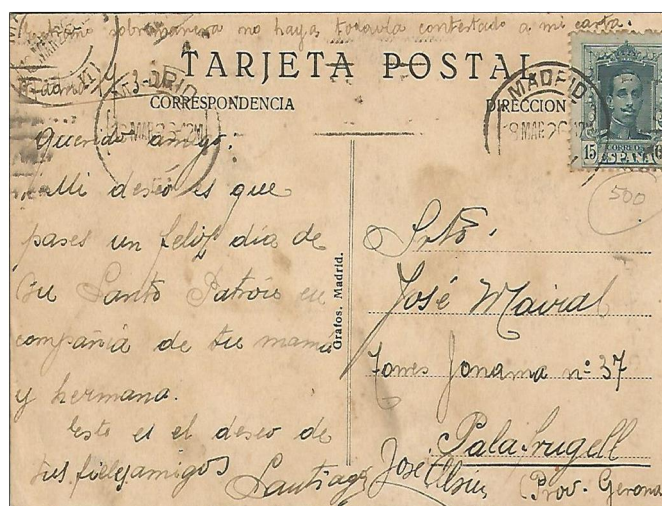 sobremanera no hayas todavía contestado a mi carta.
TARJETA POSTAL
Madrid
MADRID
CORRESPONDENCIA
DIRECCION
MADRID
MAR 26
CORREOS
15 ESPAÑA
500
Querido amigo:
Mi deseo es que
pases un feliz día de
tu Santo Patrón en
compañía de tu mama
y hermana.
Este es el deseo de
tus fieles amigos
Santiago José
Grafos. Madrid.
Srto.
José Mairal
Torres Jonama nº 37
Palafrugell
(Prov. Gerona